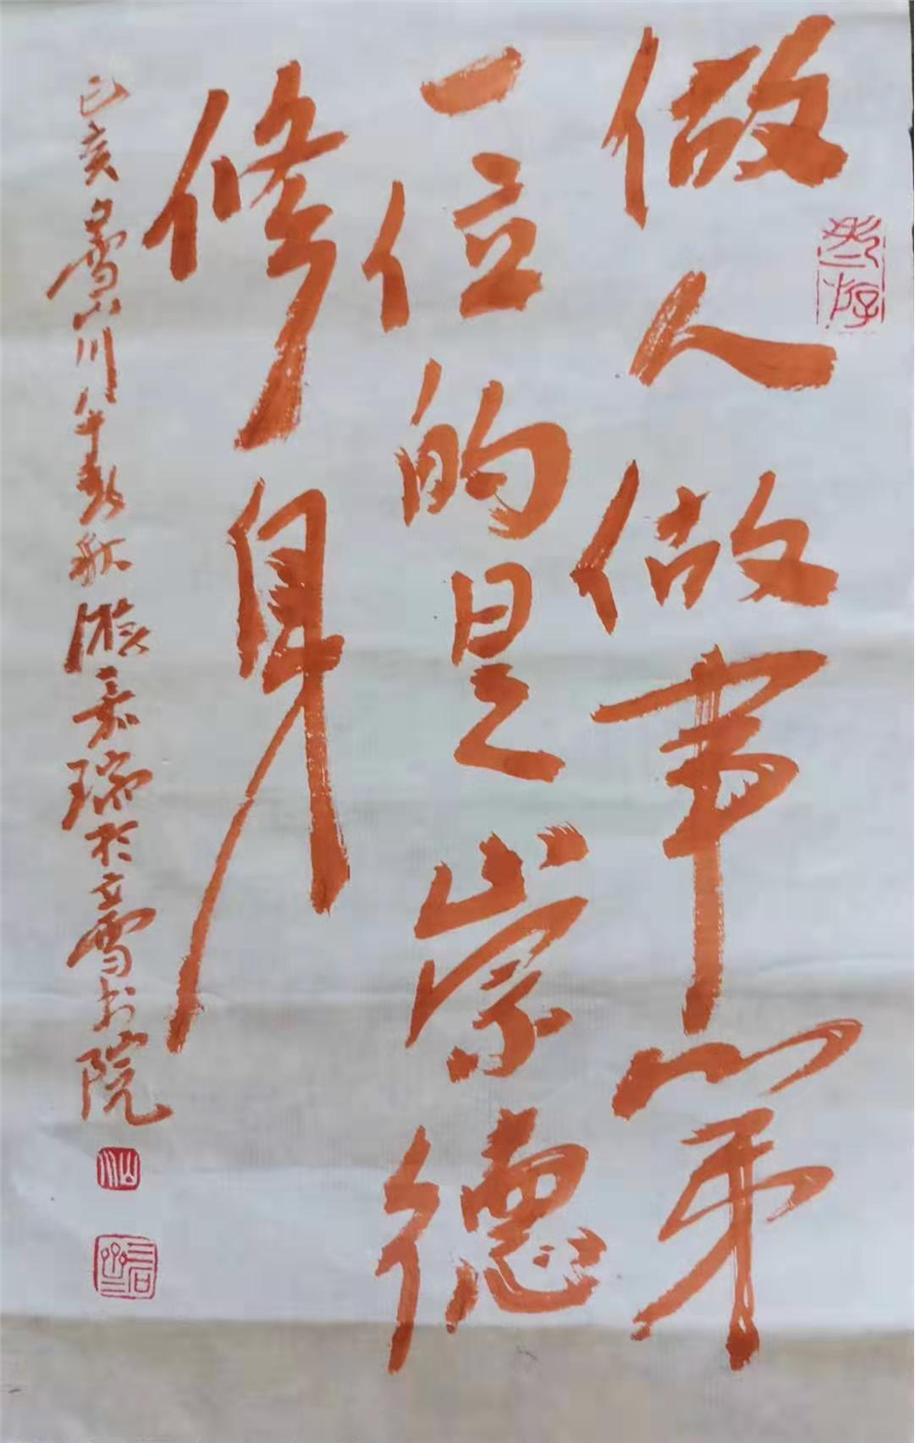 做人做事第
一位的是崇德
修身
己亥 山川 秋 嘉瑞於立雪书院